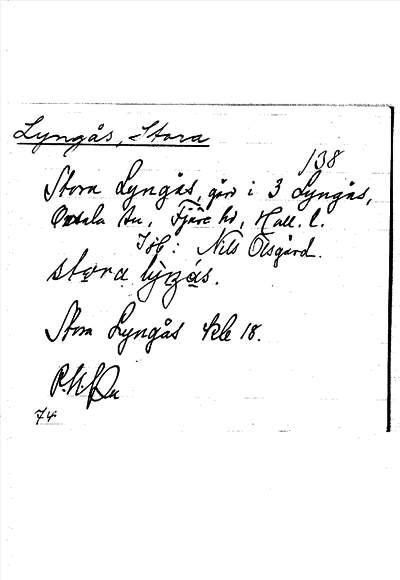 Lyngås, Stora
138
Stora Lyngås, gård i 3 Lyngås,
Onsala sn, Fjäre hd, Hall. l.
Job: Nils Olsgård.
stora lyŋås.
Stora Lyngås kle 18.
74